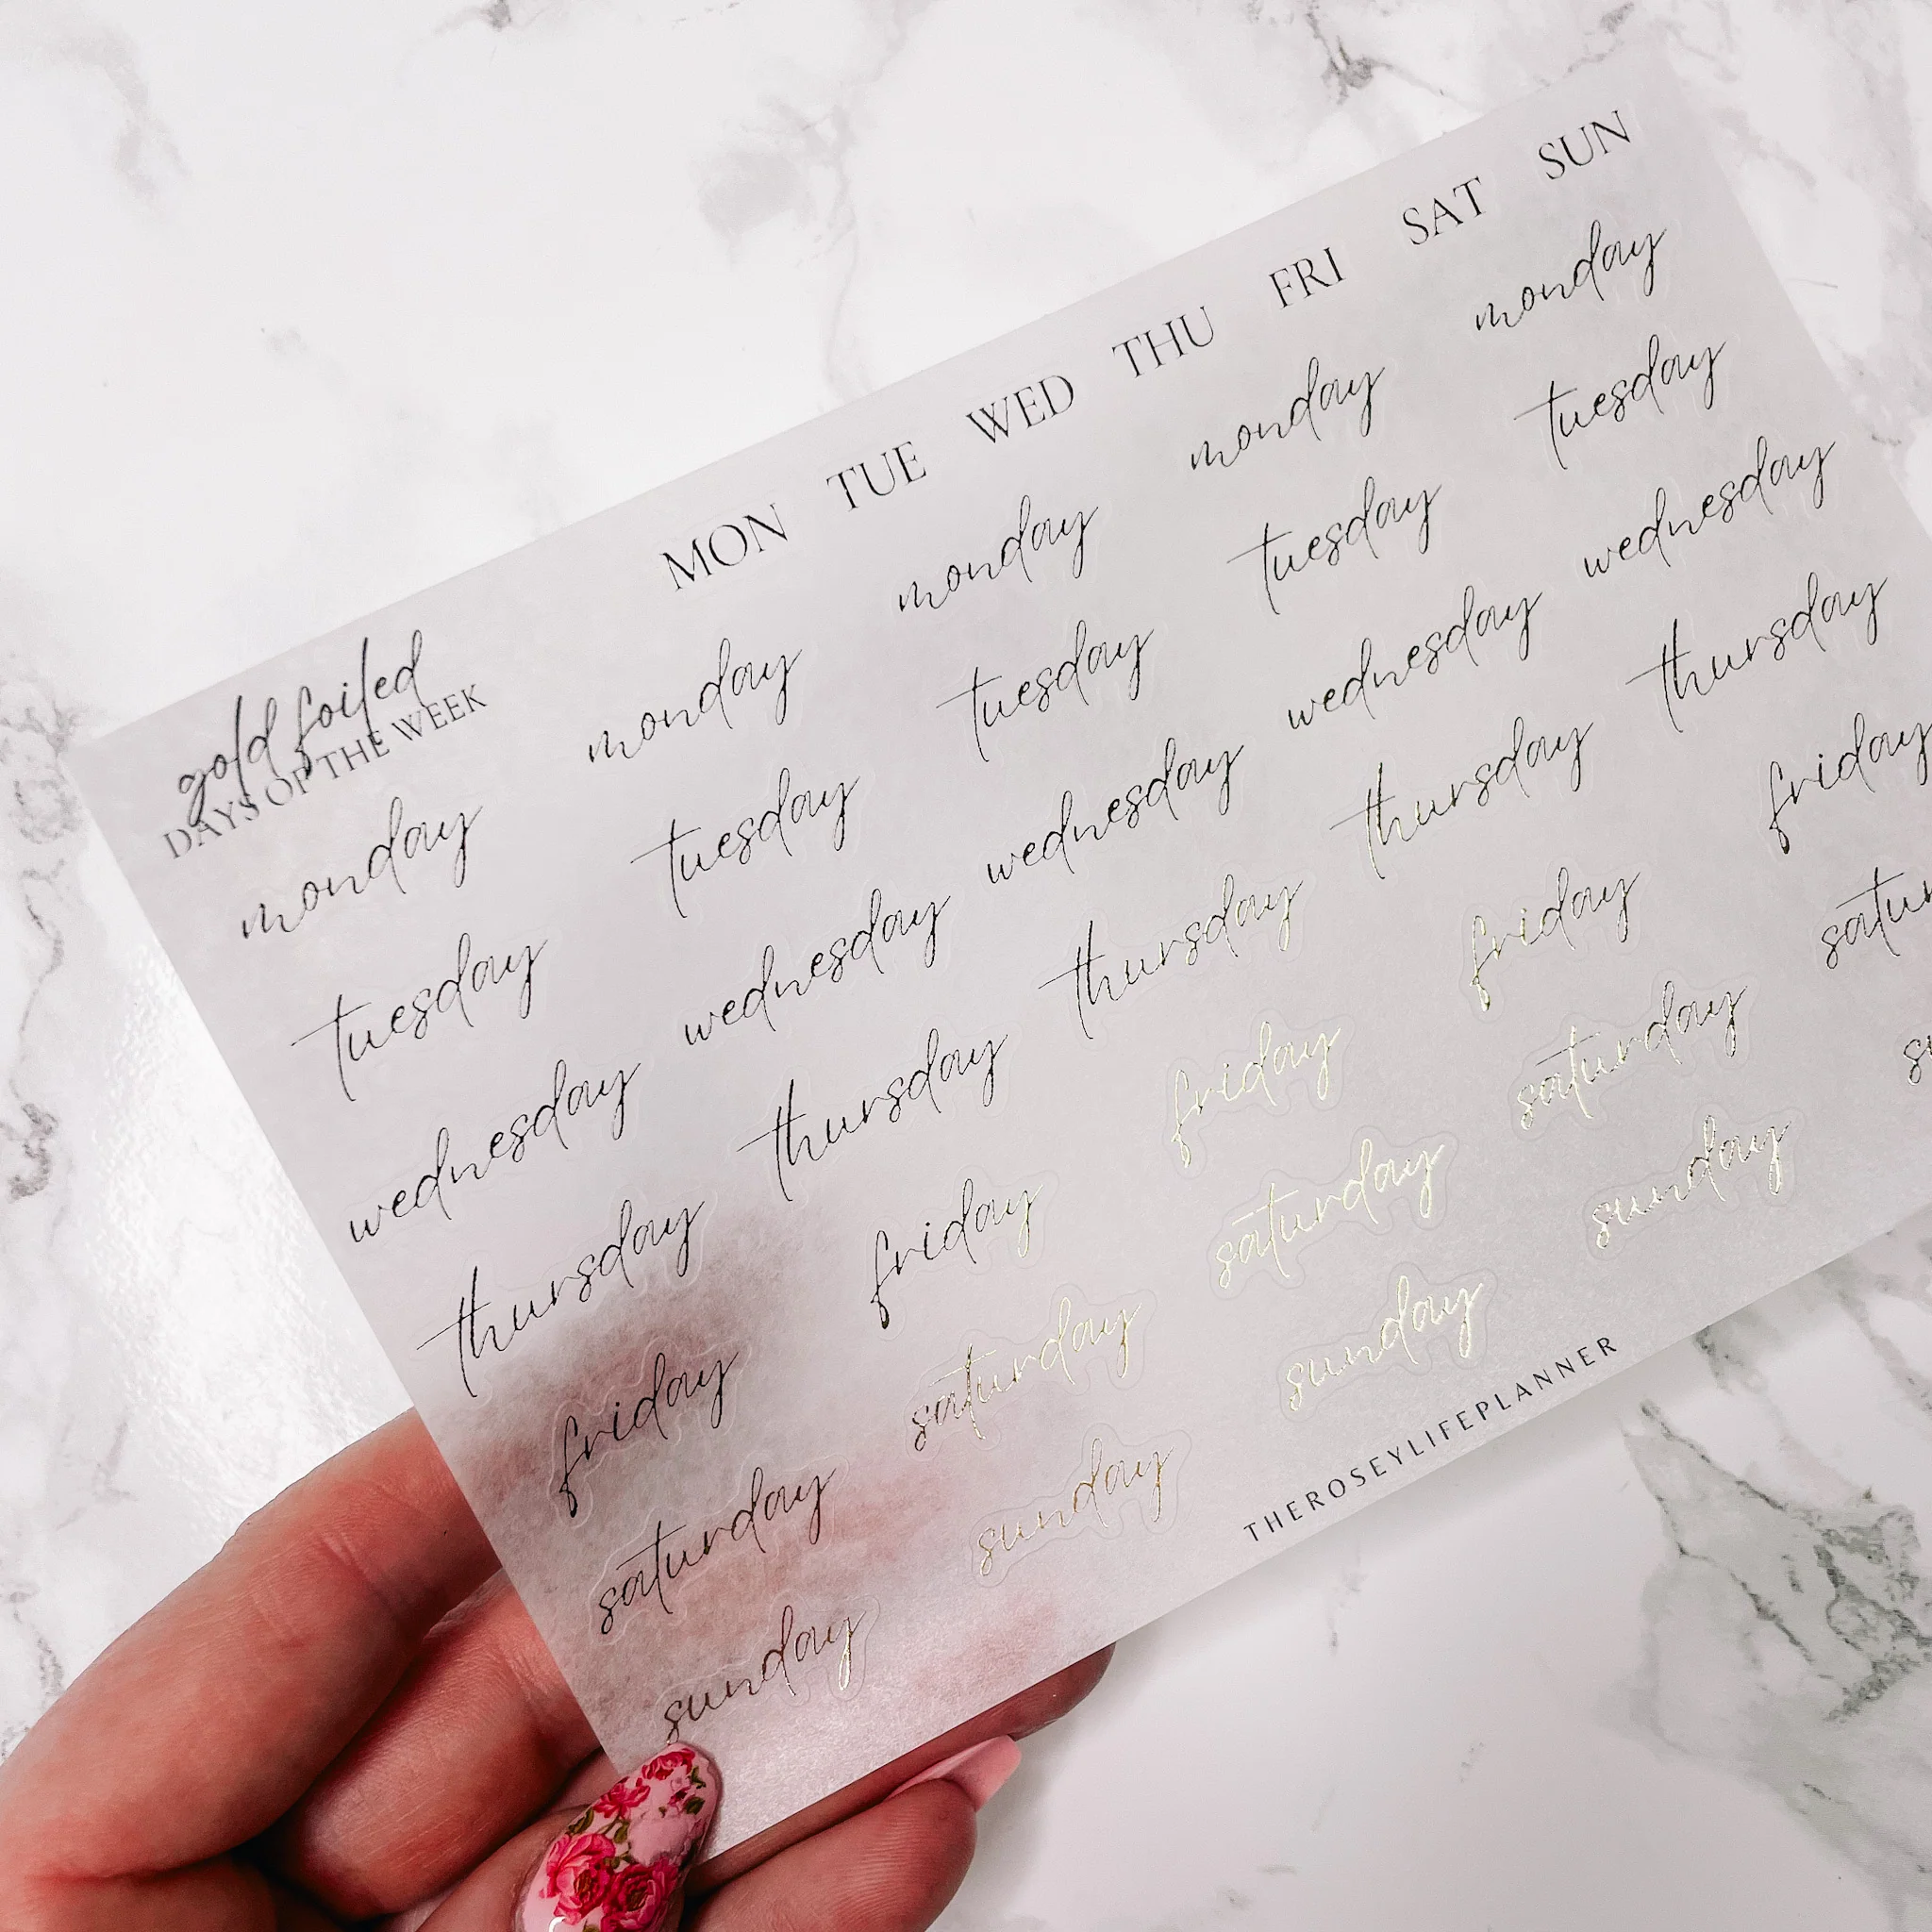 gold foiled
DAYS OF THE WEEK
MON TUE WED THU FRI SAT SUN
monday monday monday monday monday
tuesday tuesday tuesday tuesday tuesday
wednesday wednesday wednesday wednesday wednesday
thursday thursday thursday thursday thursday
friday friday friday friday friday
saturday saturday saturday saturday
sunday sunday sunday sunday
THEROSEYLIFEPLANNER